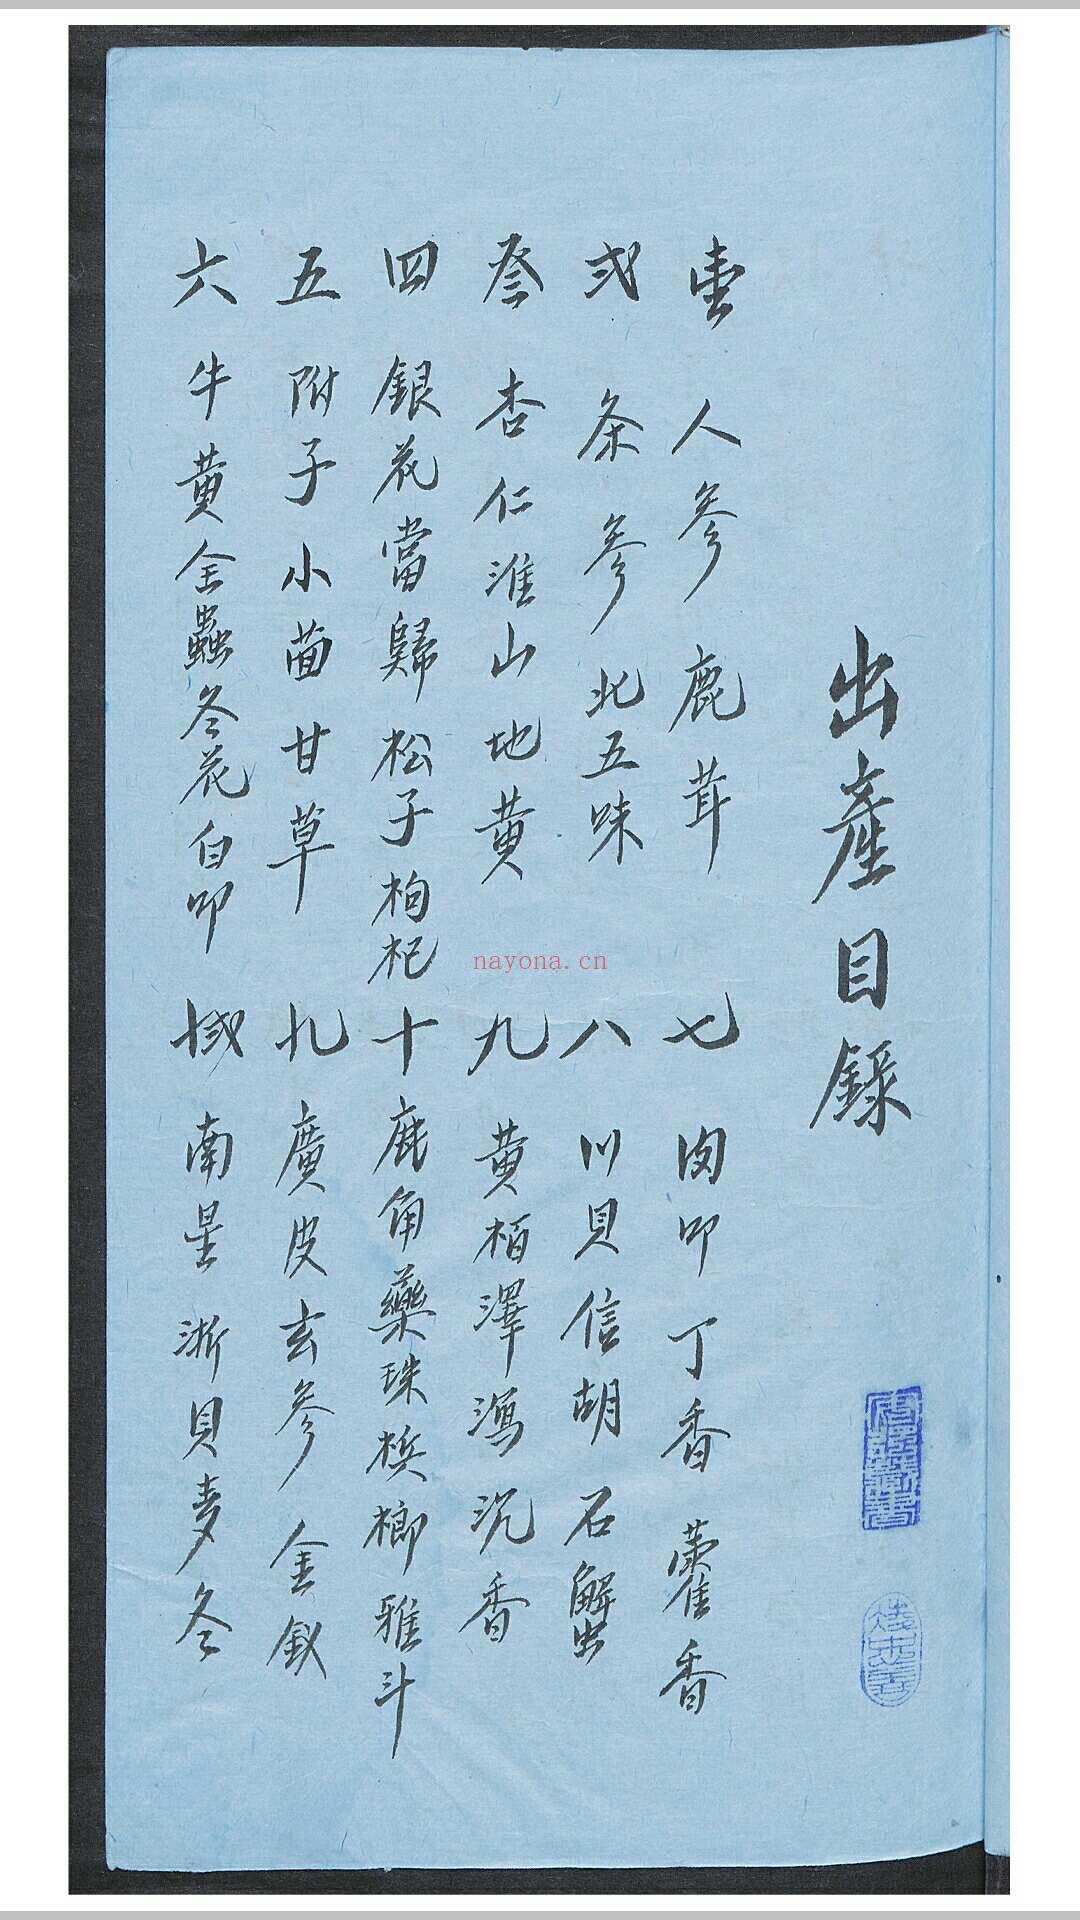 出產目錄
壹 人參 鹿茸 七 肉叩 丁香 藿香
弍 条參 北五味 八 川貝 信胡 石蟹
叄 杏仁 淮山 地黄 九 黄栢 澤瀉 沉香
四 銀花 當歸 松子 枸杞 十 鹿角 藥珠 梹榔 雅斗
五 附子 小茴 甘草 廣皮 玄參 金釵
六 牛黄 全蟲 冬花 白叩 南星 浙貝 麦冬
nayona.cn